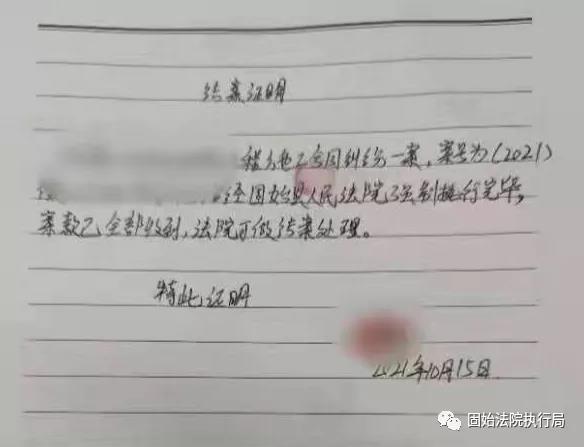 结案证明
合同纠纷一案，案号为(2021)
经固始县人民法院已强制执行完毕，
案款已全部收到，法院可做结案处理。
特此证明
2021年10月15日
固始法院执行局